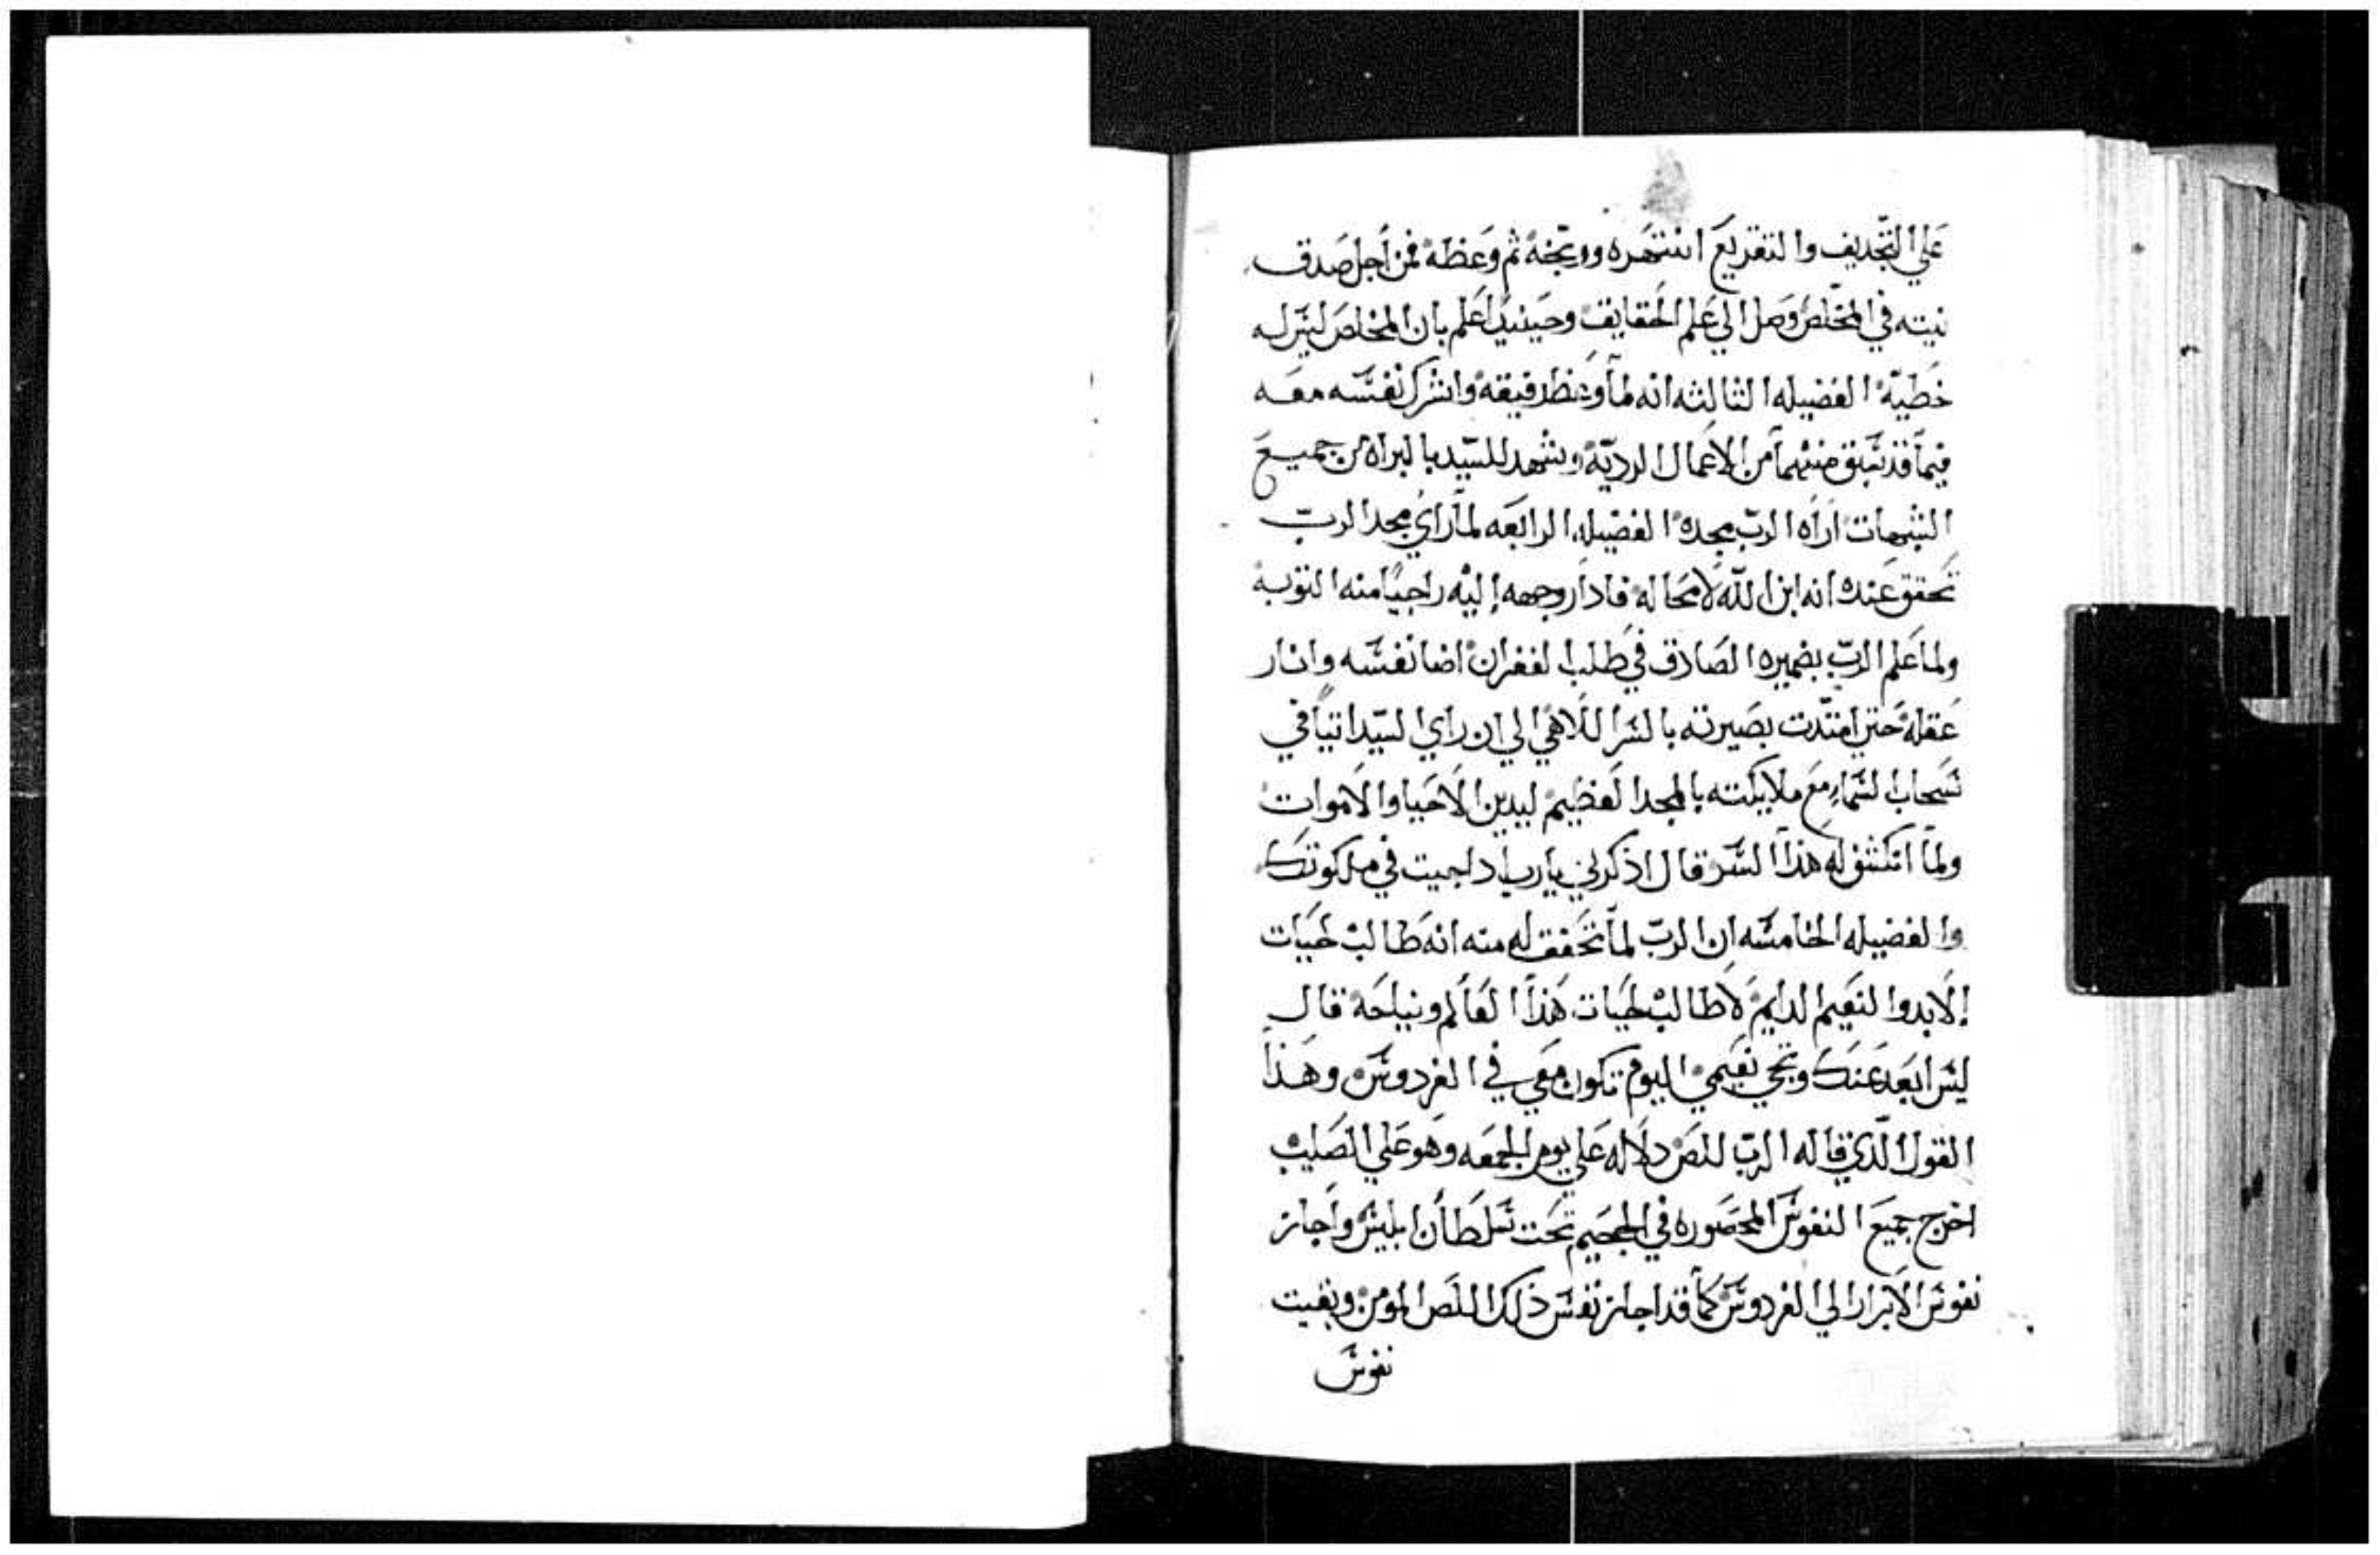 علي التجديف والتقريع انتهره ووبخه ثم وعظه فمن أجل صدق
نيته في المخلص وصل الي علم الحقايق وحينيدا علم بان المخلص ليس له
خطية الفضيله الثالثه انه لما وعظ رفيقه واشرك نفسه معه
فيما قد سبق منهما من الاعمال الرديّه وشهد للسيّد بالبراه من جميع
الشبهات أراه الربّ مجده الفضيله الرابعه لما راي مجد الربّ
تحقق عنده انه ابن الله لا محاله فادار وجهه إليه راجياً منه التوبه
ولما علم الربّ بضميره الصادق في طلب الغفران اضا نفسه وانار
عقله حتي امتدّت بصيرته بالسر اللاهي الي ان راي السيّد اتياً في
سحاب السماء مع ملايكته بالمجد العظيم ليدين الاحيا والاموات
ولما انكشف له هذا السر قال اذكرني يارب اداجيت في ملكوتك
والفضيله الخامسه ان الربّ لما تحقق له منه انه طالب لحيات
إلابد والنعيم الدايم لا طالب لحيات هذا العالم ونياحه قال
ليس ابعد عنك ونجي نعيمي اليوم تكون معي في الفردوس وهذا
القول الّذي قاله الربّ للص دلاله علي يوم الجمعه وهو علي الصليب
اخرج جميع النفوس المحصوره في الجحيم تحت سلطان ابليس واجاز
نفوس الابرار الي الفردوس كما قد اجاز نفس ذلك اللص المومن وبقيت
نفوس